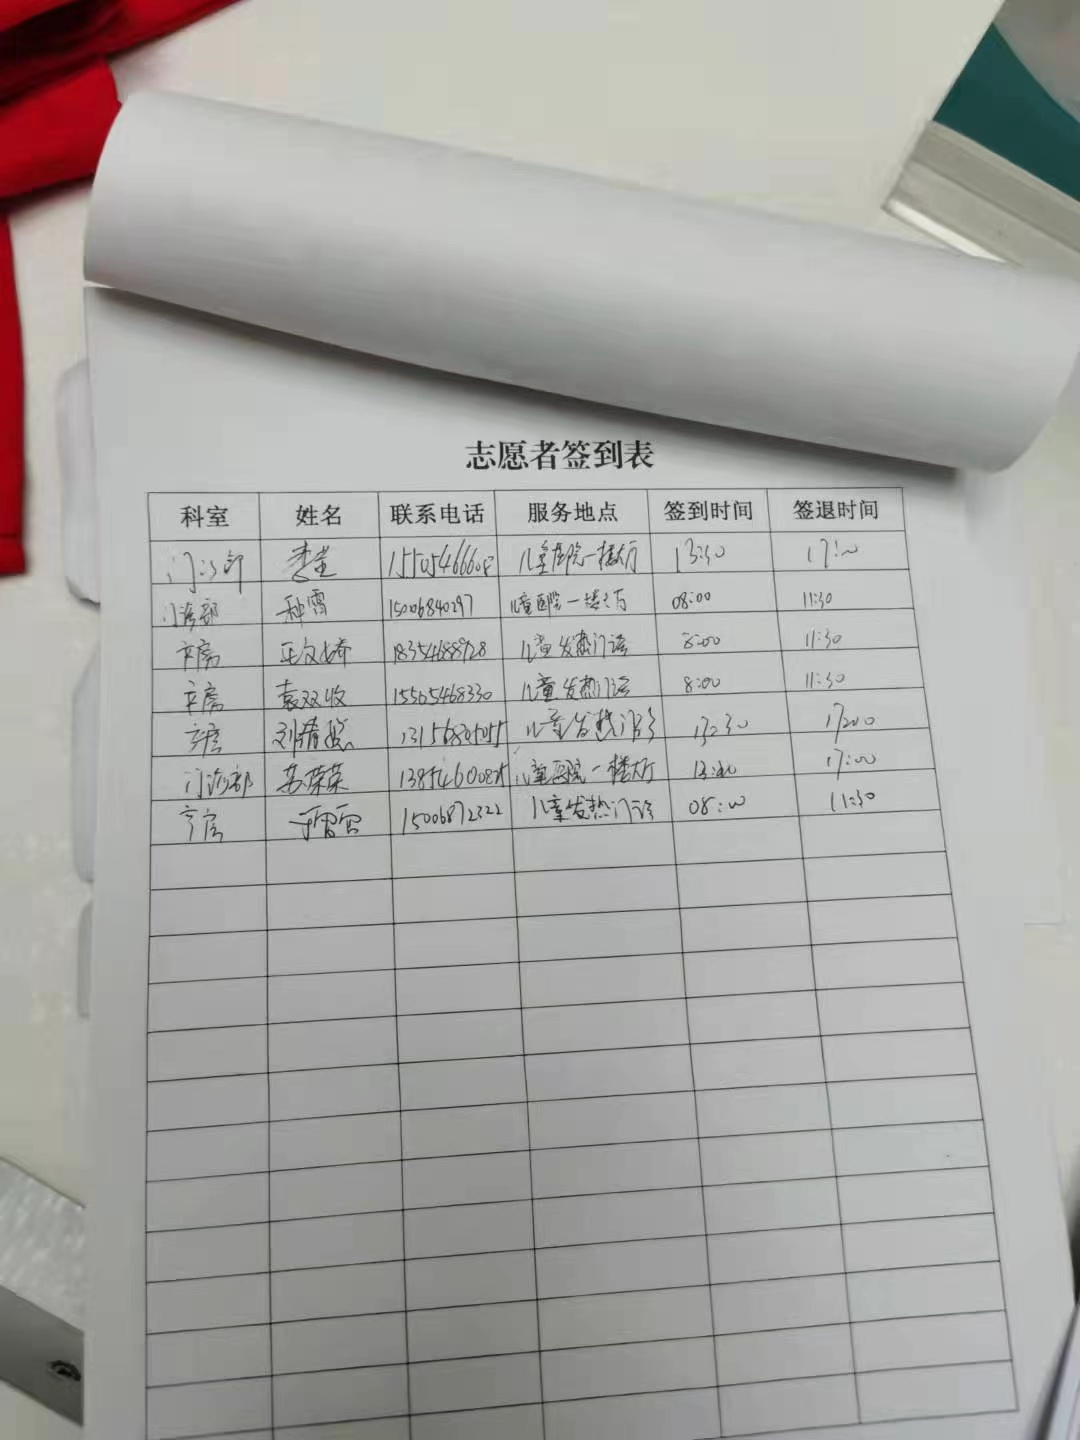 志愿者签到表
科室 姓名 联系电话 服务地点 签到时间 签退时间
门诊部 李堂 儿童医院一楼大厅 13:30 17:00
门诊部 种雪 15006840297 儿童医院一楼大厅 08:00 11:30
18354688928 儿童发热门诊 8:00 11:30
袁双收 15565468330 儿童发热门诊 8:00 11:30
儿童发热门诊 13:30 17:00
门诊部 苏荣荣 儿童医院一楼大厅 17:00
于雷雷 15006872322 儿童发热门诊 08:00 11:30